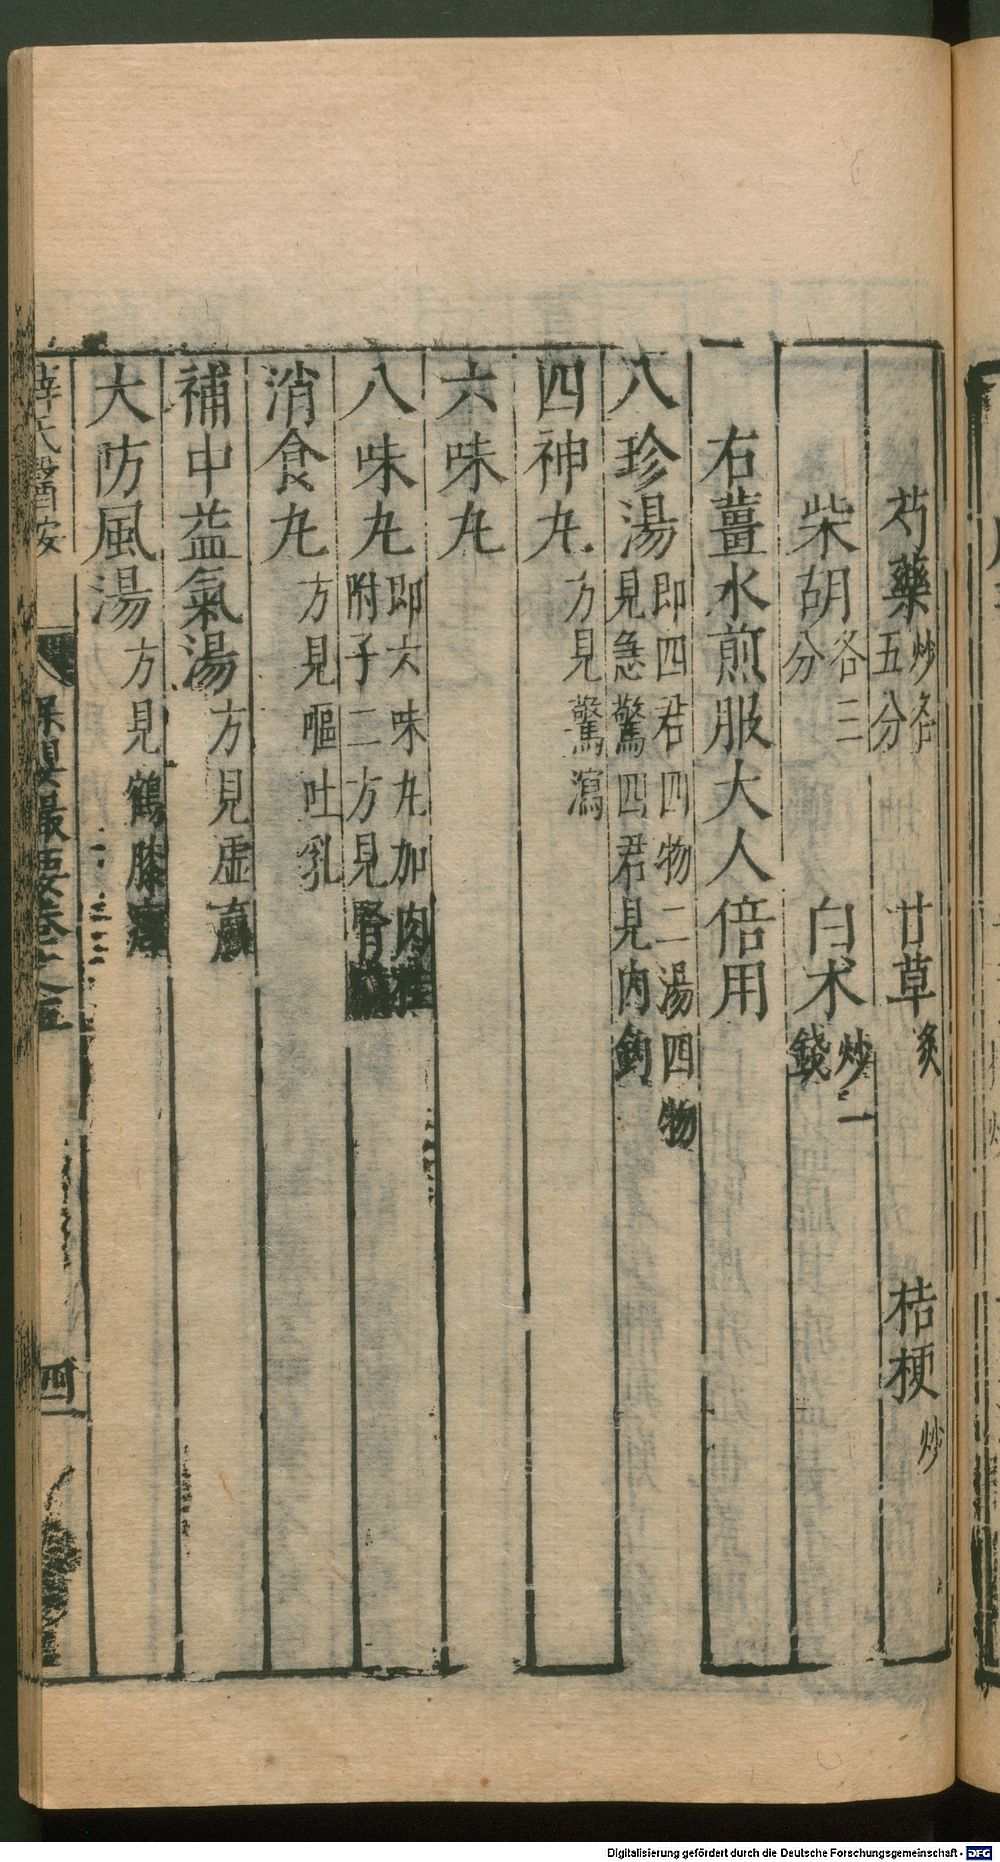 芍藥炒各五分 甘草炙 桔梗炒
柴胡各三分 白术炒一錢
右薑水煎服大人倍用
八珍湯即四君四物二湯四物見急驚四君見內鈎
四神丸方見驚瀉
六味丸
八味丸即六味丸加肉桂附子二方見腎
消食丸方見嘔吐乳
補中益氣湯方見虛羸
大防風湯方見鶴膝
薛氏醫按 保嬰撮要卷之五 四
Digitalisierung gefördert durch die Deutsche Forschungsgemeinschaft - DFG